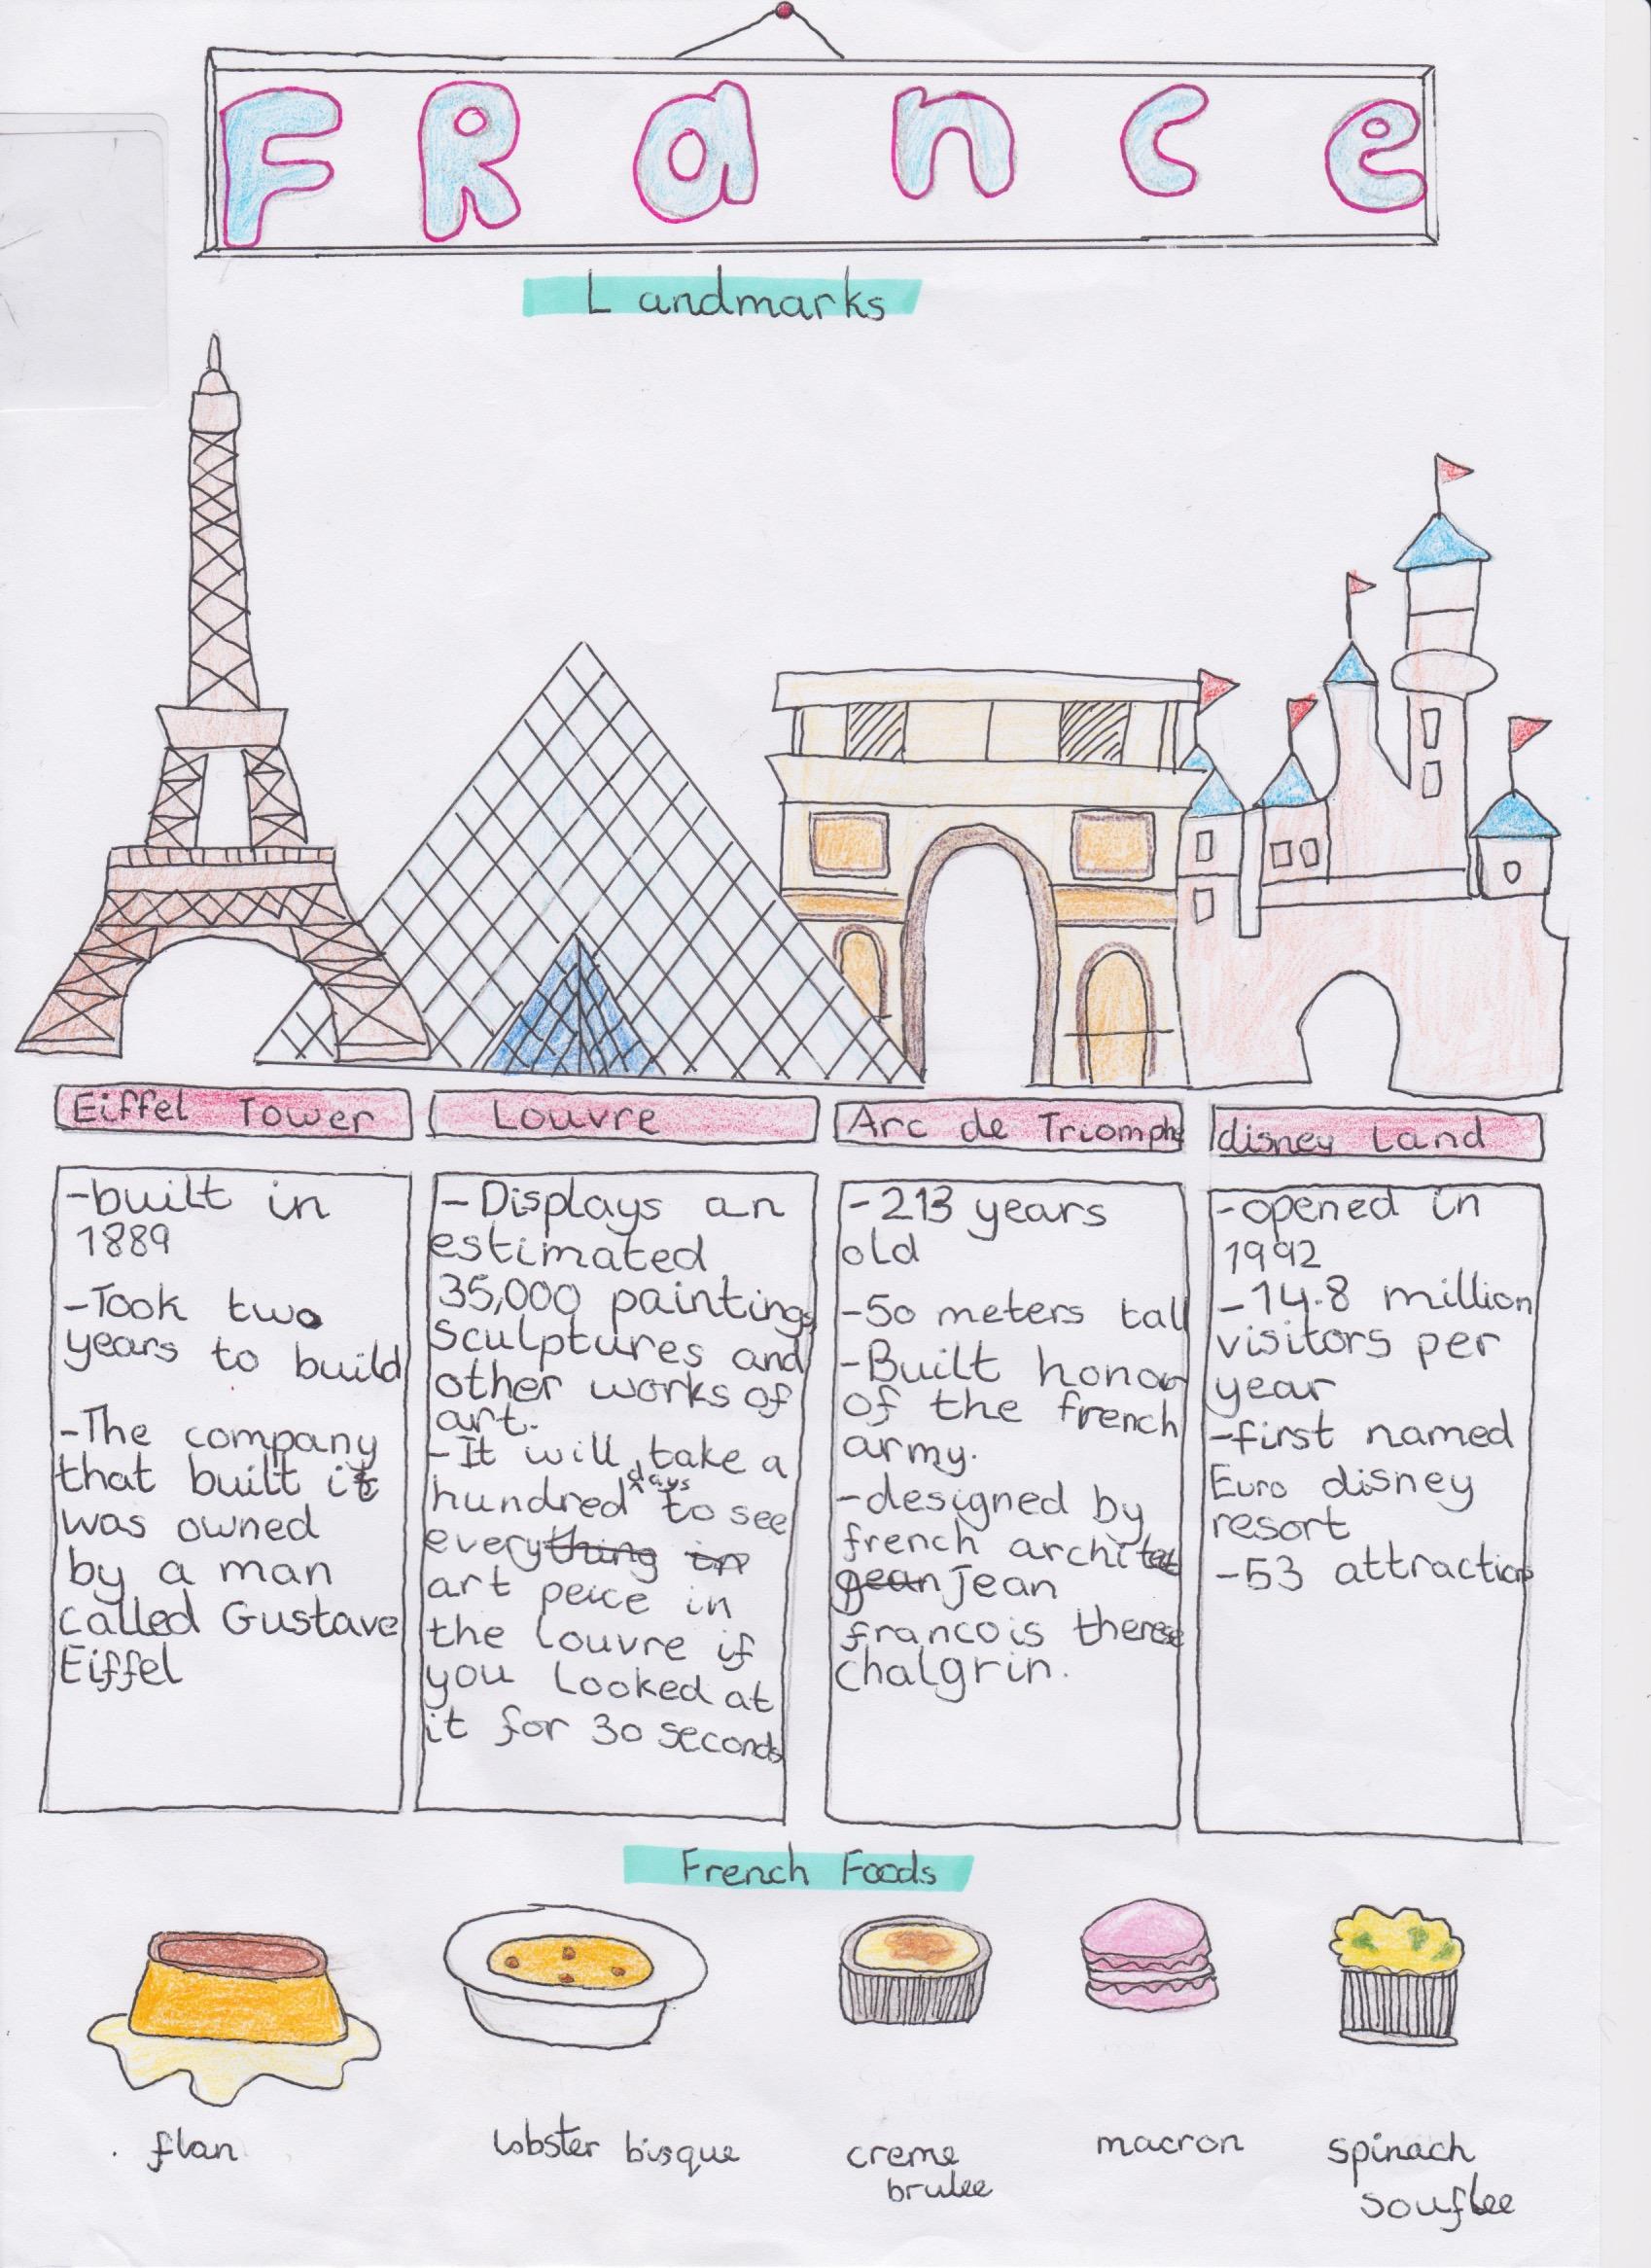 FRance
Landmarks
Eiffel Tower
-built in
1889
-Took two
years to build
-The company
that built it
was owned
by a man
called Gustave
Eiffel
Louvre
- Displays an
estimated
35,000 paintings
sculptures and
other works of
art.
-It will take a
hundred days to see
everything in
art peice in
the louvre if
you looked at
it for 30 seconds
Arc de Triomphe
-213 years
old
-50 meters tall
-Built honor
of the french
army.
-designed by
french architect
gean Jean
francois therese
chalgrin.
disney Land
-opened in
1992
-14.8 million
visitors per
year
-first named
Euro disney
resort
-53 attractions
French Foods
flan
lobster bisque
creme
brulee
macron
spinach
souflee